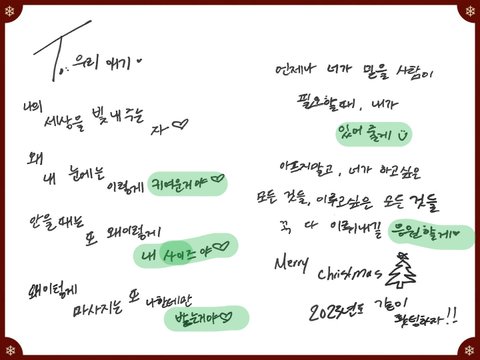 To. 우리 애기♥
나의
세상을 빛내주는
자♡
왜
내 눈에는
이렇게 귀여운거야♡
안을 때는
또 왜이렇게
내 사이즈야♡
왜이렇게
마사지는 또 나한테만
받는거야♡
언제나 너가 믿을 사람이
필요할때, 내가
있어 줄게
아프지말고, 너가 하고싶은
모든 것들, 이루고싶은 모든 것들
꼭 다 이뤄내길 응원할게♥
Merry
Christmas
2025년도 같이
화팅하자!!